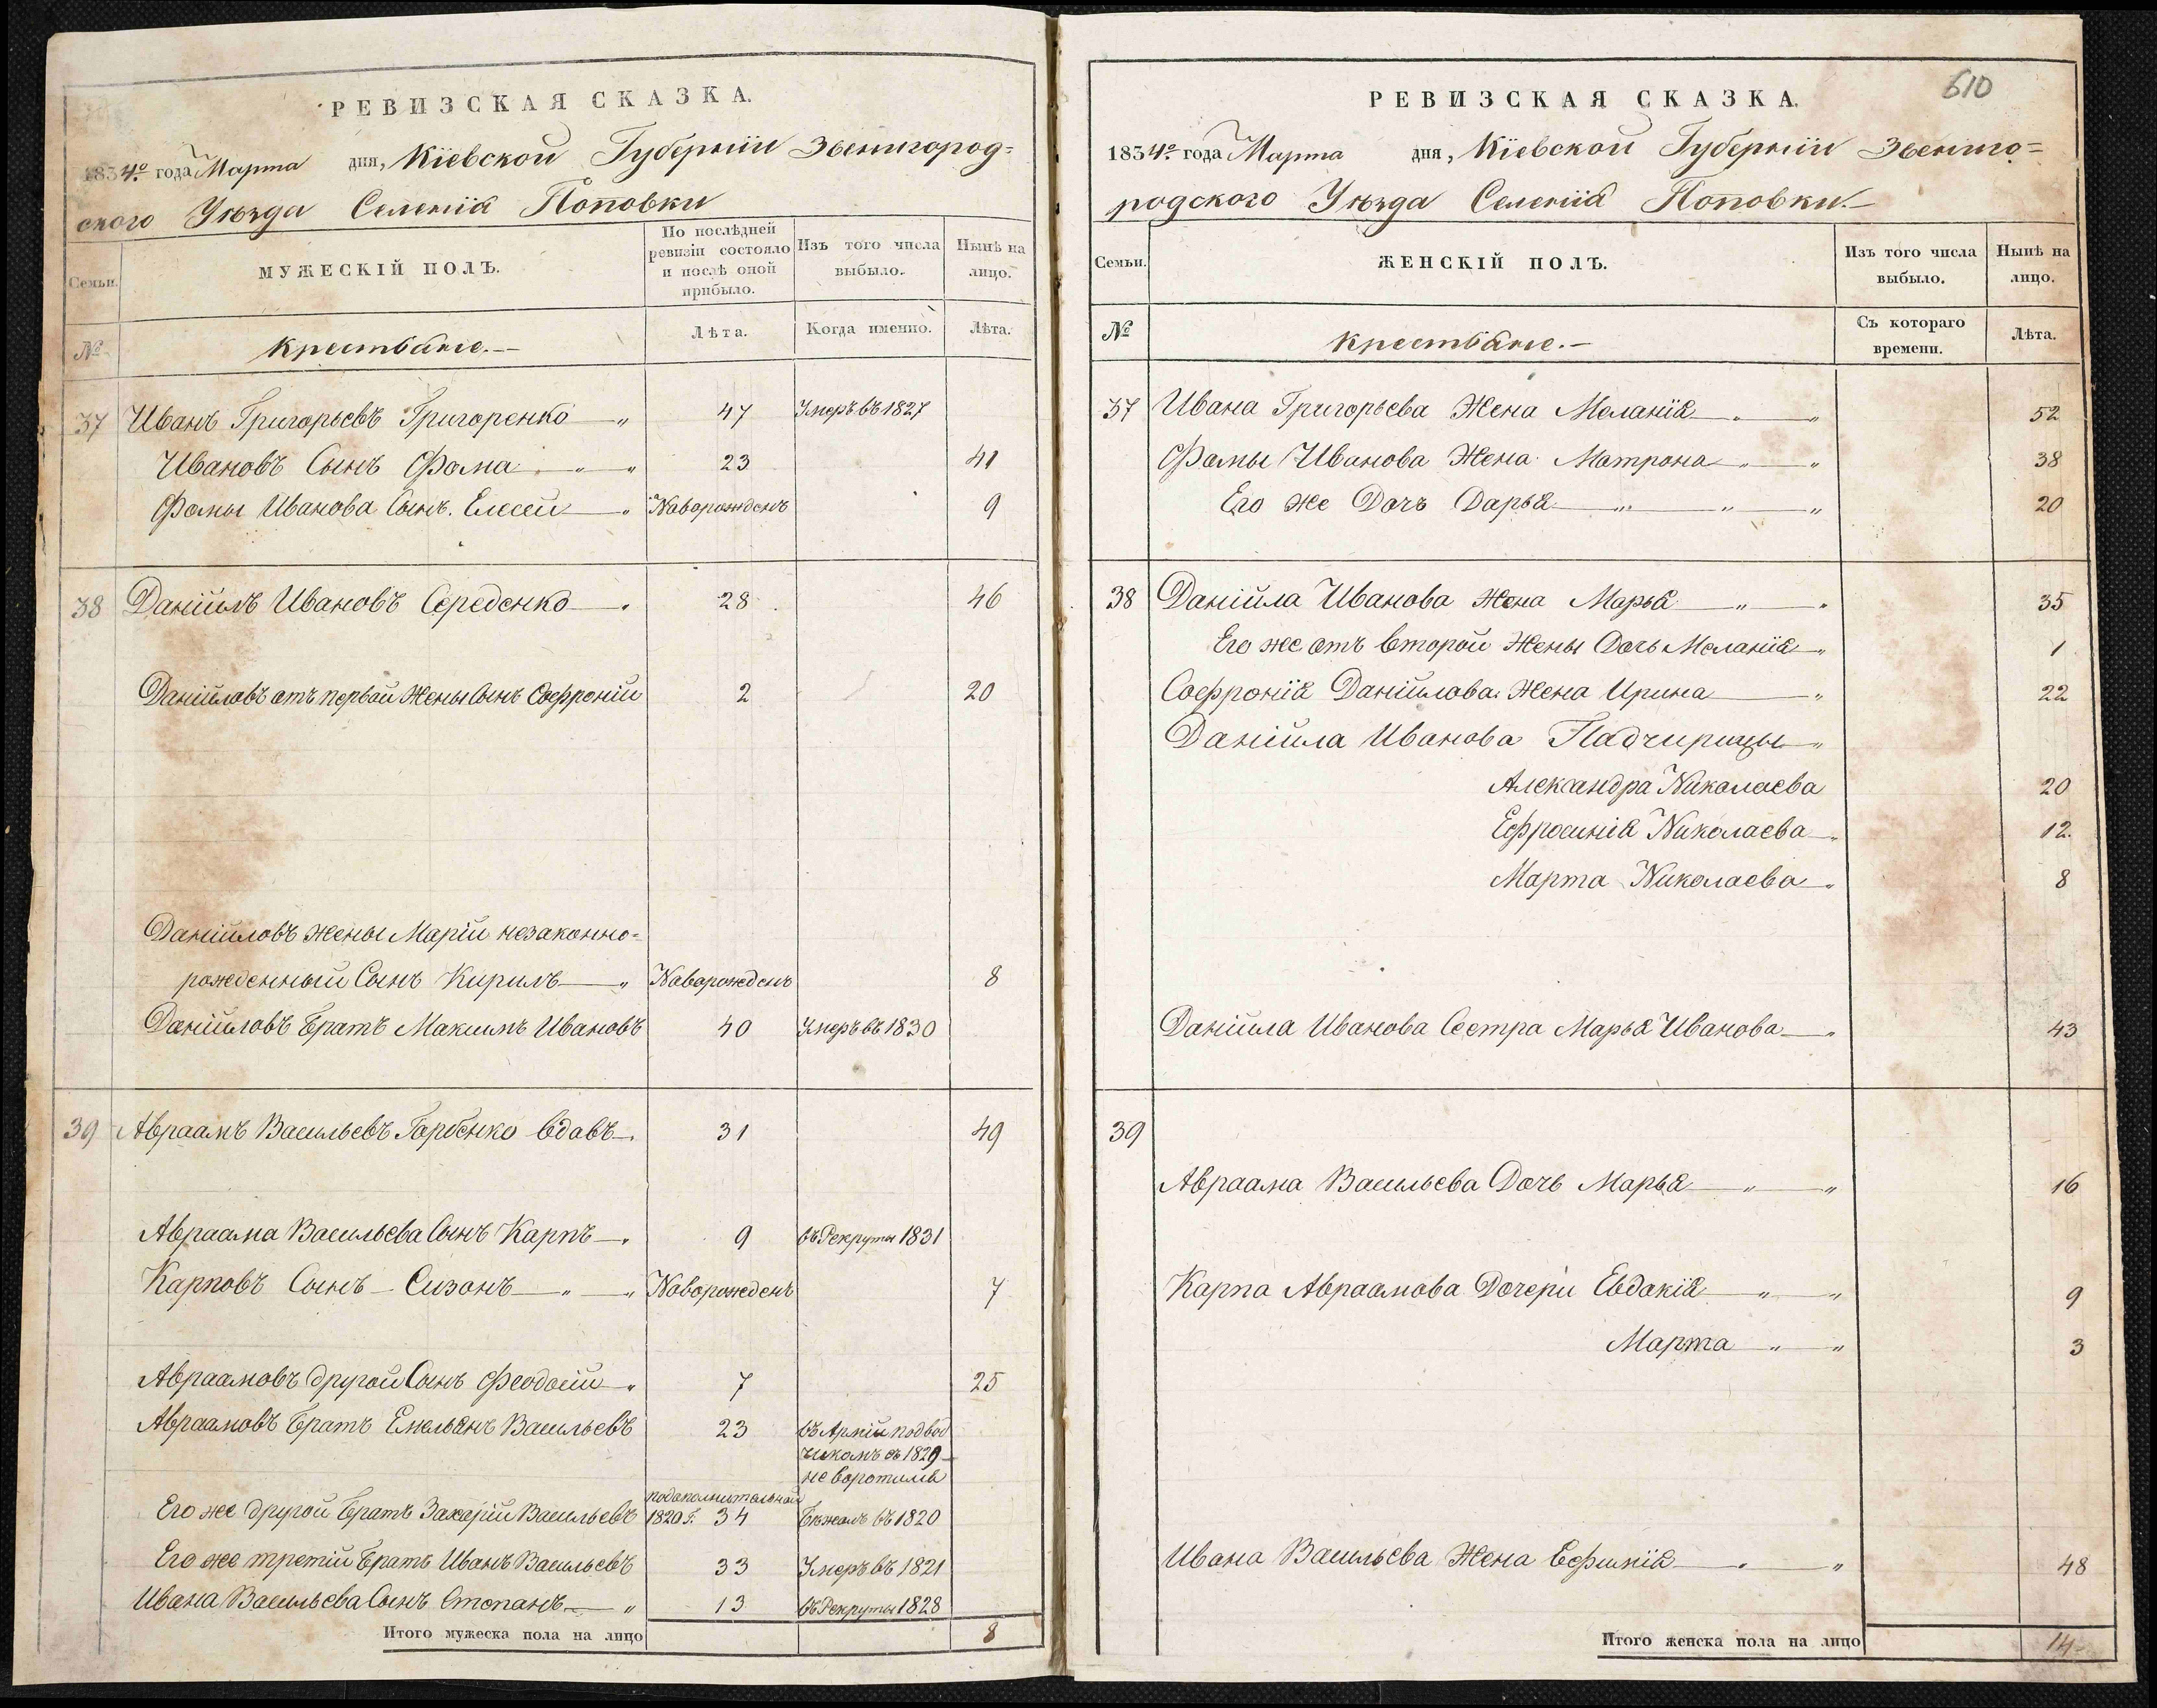 РЕВИЗСКАЯ СКАЗКА.
1834го года Марта дня, Кіевской Губерніи Звенигород=
ского Уѣзда Селенія Поповки
Семьи.
МУЖЕСКІЙ ПОЛЪ.
По послѣдней ревизіи состояло и послѣ оной прибыло.
Изъ того числа выбыло.
Нынѣ на лицо.
№
Крестьяне.—
Лѣта.
Когда именно.
Лѣта.
37 Иванъ Григорьевъ Григоренко — " 47 Умеръ въ 1827
Ивановъ Сынъ Фома — " — " 23 41
Фомы Иванова Сынъ Елесей — " Новорожденъ 9
38 Даніилъ Ивановъ Середенко — " 28 46
Даніиловъ отъ первой Жены Сынъ Софроній 2 20
Даніиловъ жены Маріи незаконно=
рожденный Сынъ Кирилъ — " Новорожденъ 8
Даніиловъ Братъ Максимъ Ивановъ 40 Умеръ въ 1830
39 Авраамъ Васильевъ Горбенко вдовъ — " 31 49
Авраама Васильева Сынъ Карпъ — " 9 въ Рекруты 1831
Карповъ Сынъ — Сизонъ — " — " Новорожденъ 7
Авраамовъ другой Сынъ Феодосій — " 7 25
Авраамовъ Братъ Емельянъ Васильевъ 23 въ Арміи подвод
чикомъ съ 1829 —
не воротился
подополнительной
Его же другой Братъ Захарій Васильевъ 1820 г. 34 Бѣжалъ въ 1820
Его же третій Братъ Иванъ Васильевъ 33 Умеръ въ 1821
Ивана Васильева Сынъ Степанъ — " 13 въ Рекруты 1828
Итого мужеска пола на лицо 8
610
РЕВИЗСКАЯ СКАЗКА.
1834го года Марта дня, Кіевской Губерніи Звениго=
родского Уѣзда Селенія Поповки.—
Семьи.
ЖЕНСКІЙ ПОЛЪ.
Изъ того числа выбыло.
Нынѣ на лицо.
№
Крестьяне.—
Съ котораго времени.
Лѣта.
37 Ивана Григорьева Жена Меланія — " — " 52
Фомы Иванова Жена Матрона — " — " 38
Его же Дочь Дарья — " — " — " 20
38 Даніила Иванова жена Марья — " — " 35
Его же отъ второй Жены Дочь Меланія — " 1
Софронія Даніилова Жена Ирина — " 22
Даніила Иванова Падчирицы — "
Александра Николаева 20
Ефросинія Николаева — " 12.
Марта Николаева — " 8
Даніила Иванова Сестра Марья Иванова — " 43
39
Авраама Васильева Дочь Марья — " — " 16
Карпа Авраамова Дочери Евдокія — " — " 9
Марта — " — " 3
Ивана Васильева Жена Ефимія — " — " 48
Итого женска пола на лицо 14